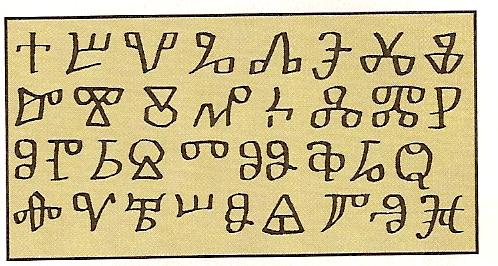 Ⰰ Ⰱ Ⰲ Ⰳ Ⰴ Ⰵ Ⰶ Ⰷ
Ⰸ Ⰺ Ⰻ Ⰼ Ⰽ Ⰾ Ⰿ Ⱀ
Ⱁ Ⱂ Ⱃ Ⱄ Ⱅ Ⱆ Ⱇ Ⱈ Ⱉ
Ⱋ Ⱌ Ⱍ Ⱎ Ⱏ Ⱑ